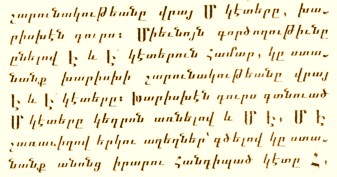 շարունակութեանը վրայ Մ կէտերը, խա-
րիսխէն դուրս: Միեւնոյն գործողութիւնը
ընելով Է և Է՛ կէտերուն համար, կը ստա-
նանք խարիսխի շարունակութեանը վրայ
Է և Է՛ կէտերը: Խարիսխէն դուրս գտնուած
Մ կէտերը կեդրոն առնելով և Մ Է, Մ Է
շառաւիղով երկու աղեղներ՝ գծելով կը ստա-
նանք անոնց իրարու հանդիպած կէտը Հ,